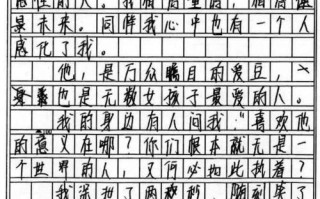 是未来。同样我心中也有一个人
感化了我。
他，是万众瞩目的爱豆，
也是无数女孩子最爱的人。
我的身边有人问我：“喜欢他
的意义在哪？你们根本就无是一
个世界的人，又何必如此执着？